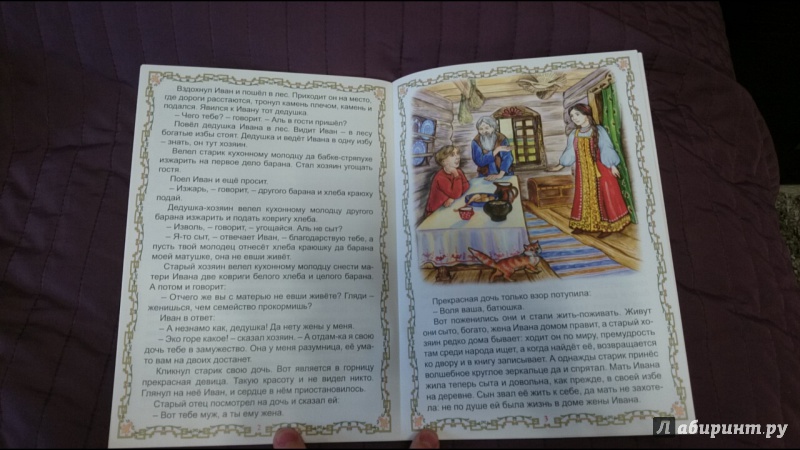 Вздохнул Иван и пошёл в лес. Приходит он на место,
где дороги расстаются, тронул камень плечом, камень и
подался. Явился к Ивану тот дедушка.
– Чего тебе? – говорит. – Аль в гости пришёл?
Повёл дедушка Ивана в лес. Видит Иван – в лесу
богатые избы стоят. Дедушка и ведёт Ивана в одну избу
– знать, он тут хозяин.
Велел старик кухонному молодцу да бабке-стряпухе
изжарить на первое дело барана. Стал хозяин угощать
гостя.
Поел Иван и ещё просит.
– Изжарь, – говорит, – другого барана и хлеба краюху
подай.
Дедушка-хозяин велел кухонному молодцу другого
барана изжарить и подать ковригу хлеба.
– Изволь, – говорит, – угощайся. Аль не сыт?
– Я-то сыт, – отвечает Иван, – благодарствую тебе, а
пусть твой молодец отнесёт хлеба краюшку да барана
моей матушке, она не евши живёт.
Старый хозяин велел кухонному молодцу снести ма-
тери Ивана две ковриги белого хлеба и целого барана.
А потом и говорит:
– Отчего же вы с матерью не евши живёте? Гляди –
женишься, чем семейство прокормишь?
Иван в ответ:
– А незнамо как, дедушка! Да нету жены у меня.
– Эко горе какое! – сказал хозяин. – А отдам-ка я свою
дочь тебе в замужество. Она у меня разумница, её ума-
то вам на двоих достанет.
Кликнул старик свою дочь. Вот является в горницу
прекрасная девица. Такую красоту и не видел никто.
Глянул на неё Иван, и сердце в нём приостановилось.
Старый отец посмотрел на дочь и сказал ей:
– Вот тебе муж, а ты ему жена.
2
Прекрасная дочь только взор потупила:
– Воля ваша, батюшка.
Вот поженились они и стали жить-поживать. Живут
они сыто, богато, жена Ивана домом правит, а старый хо-
зяин редко дома бывает: ходит он по миру, премудрость
там среди народа ищет, а когда найдёт её, возвращается
ко двору и в книгу записывает. А однажды старик принёс
волшебное круглое зеркальце да и спрятал. Мать Ивана
жила теперь сыта и довольна, как прежде, в своей избе
на деревне. Сын звал её жить к себе, да мать не захоте-
ла: не по душе ей была жизнь в доме жены Ивана.
Лабиринт.ру